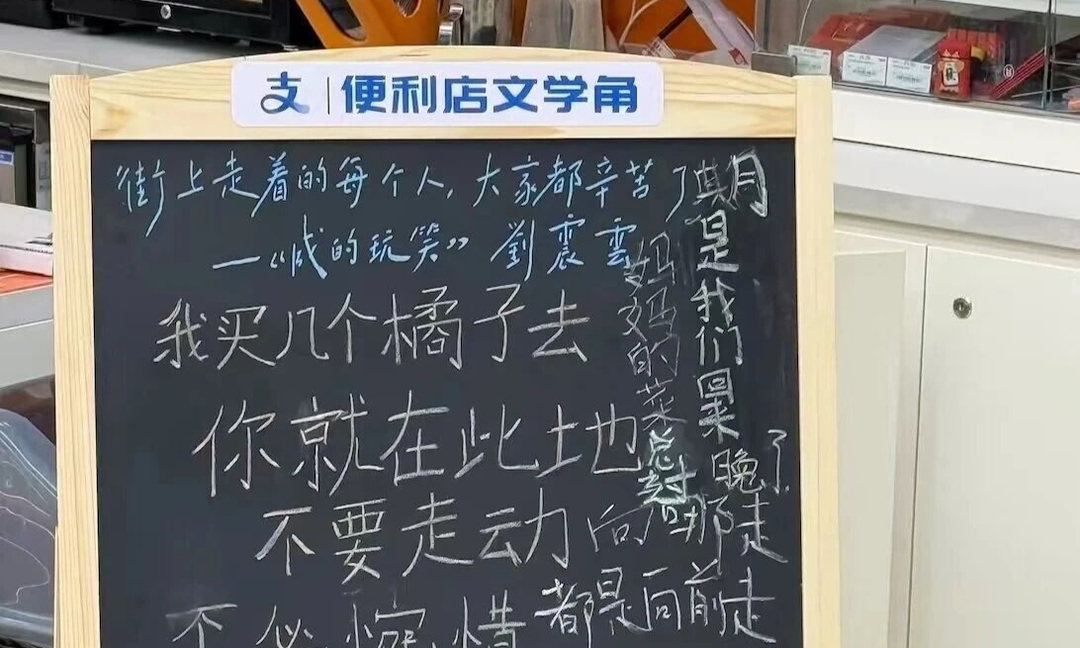 支 | 便利店文学角
街上走着的每个人，大家都辛苦了
—“咸的玩笑” 劉震雲
我买几个橘子去
你就在此地
不要走动
不必惋惜
妈妈的菜
是我们
晚了
向哪走
都是向前走